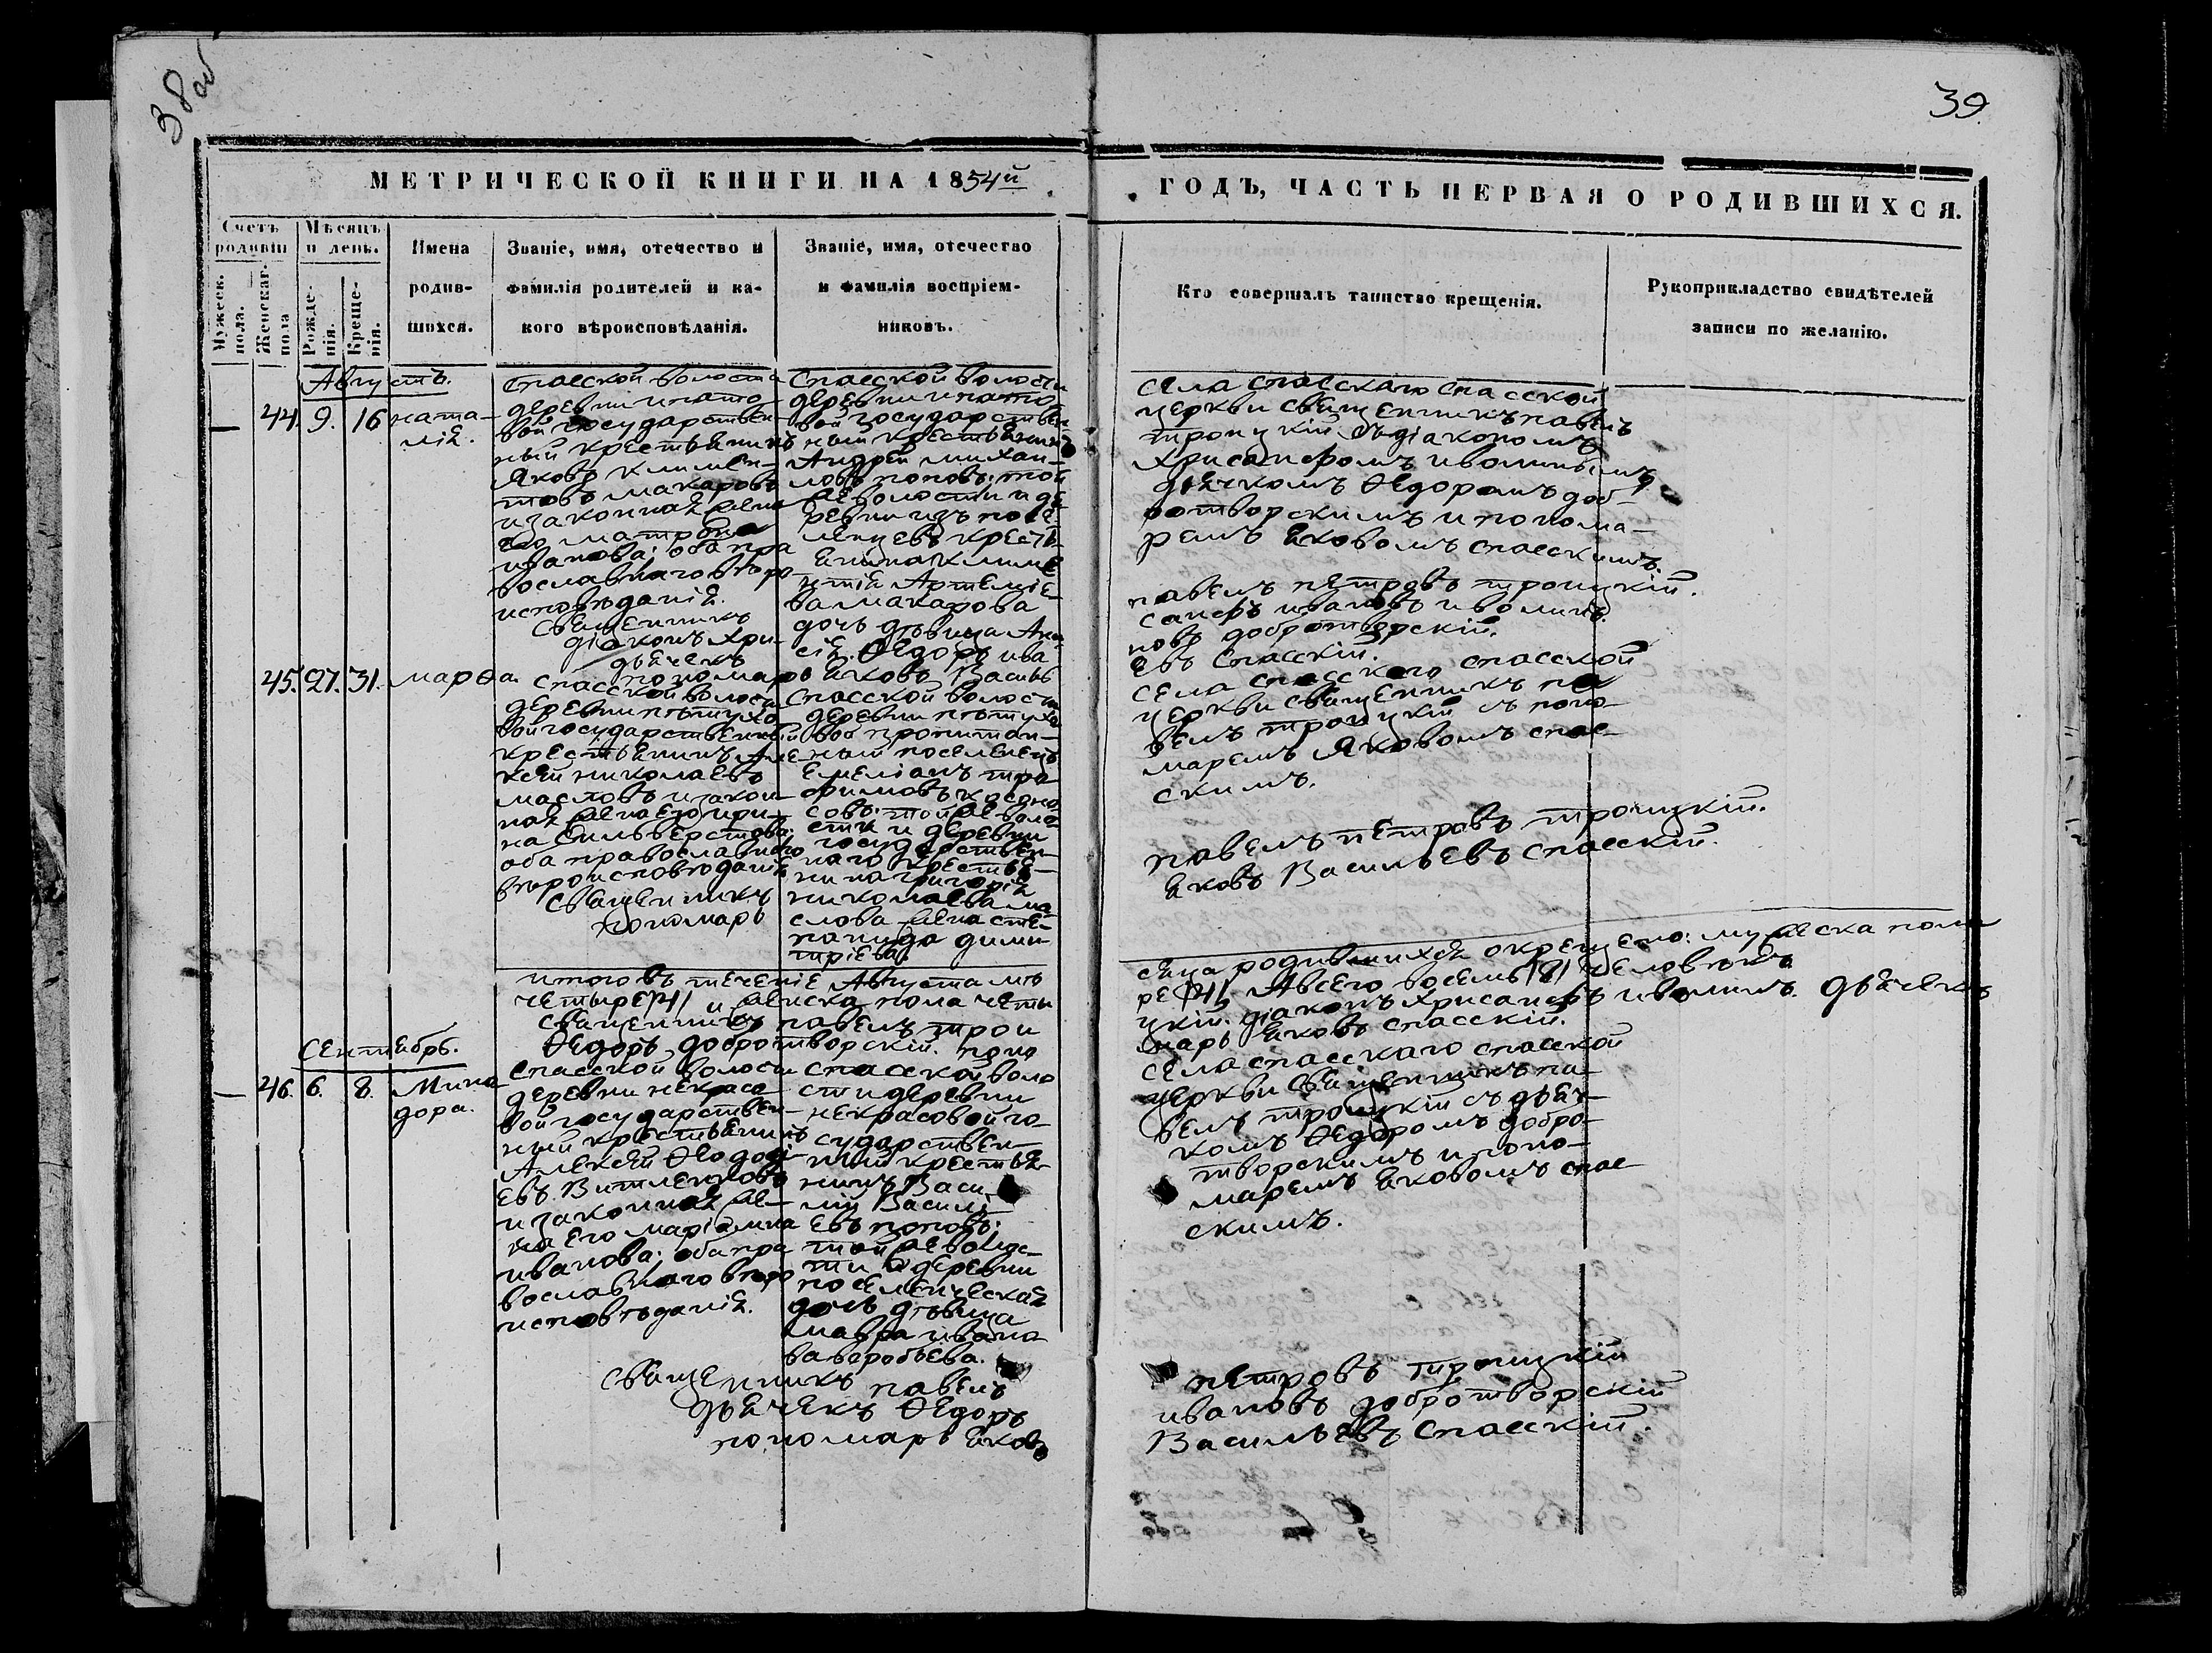 38 об
39.
МЕТРИЧЕСКОЙ КНИГИ НА 1854й
ГОДЪ, ЧАСТЬ ПЕРВАЯ О РОДИВШИХСЯ.
Счетъ родивш
Мѣсяцъ и день.
Мужеск. пола.
Женскаг. пола
Рожде-нія.
Креще-нія.
Имена
родив-
шихся.
Званіе, имя, отечество и
фамилія родителей и ка-
кого вѣроисповѣданія.
Званіе, имя, отечество
и фамилія воспріем-
никовъ.
Кто совершалъ таинство крещенія.
Рукоприкладство свидѣтелей
записи по желанію.
Августъ.
— 44. 9. 16 ната-
лія.
Спасской волости
деревни
вой государствен-
ный крестьянинъ
Яковъ Климен-
товъ Макаровъ
и законная жена
его Матрона
Иванова; оба пра
вославнаго вѣро-
исповѣданія.
Священникъ
діаконъ Хри-
дьячекъ
пономарь
Спасской волости
деревни
вой государствен-
ный крестьянинъ
Андрей Михаи-
ловъ Поповъ: той
же волости и де
ревни изъ посе-
ленцевъ кресть-
янина Климе
нтія Артеміе-
ва Макарова
дочь дѣвица
Ѳедоръ ива
Яковъ Василь
села Спасскаго Спасской
церкви священникъ Павелъ
Троицкій съ діакономъ
Хрисанфомъ
дьячкомъ Ѳедоромъ доб-
ротворскимъ и понома-
ремъ Яковомъ Спасскимъ.
Павелъ Петровъ Троицкій.
санфъ Ивановъ
новъ Добротворскій.
евъ Спасскій.
45. 27. 31. Марѳа.
Спасской волости
деревни Пѣтухо
вой государственный
крестьянинъ Але
ксѣй Николаевъ
Масловъ и закон-
ная жена его Ири-
на Сильверстова:
оба православнаго
вѣроисповѣданія
Священникъ
пономарь
Спасской волости
деревни Пѣтухо
вой пропитан-
ный поселенецъ
Емеліанъ Тро
фимовъ
совъ: той же воло-
сти и деревни
государствен-
наго крестья-
нина Григорія
Николаева Ма
слова жена Сте-
панида Дими-
тріева.
села Спасскаго Спасской
церкви священникъ Па
велъ Троицкій съ поно-
маремъ Яковомъ Спас-
скимъ.
Павелъ Петровъ Троицкій.
Яковъ Васильевъ Спасскій.
итого въ теченіе Августа мѣ
сяца родившихся окрещено: мужеска пола
четыре /4/ и женска пола четы
ре /4/, А всего восемь /8/ человѣкъ
Священникъ Павелъ Трои
цкій. діаконъ Хрисанфъ дьячекъ
Ѳедоръ Добротворскій. поно
марь Яковъ Спасскій.
Сентябрь.
— 46. 6. 8. Мина
дора.
Спасской волости
деревни Некрасо
вой государствен-
ный крестьянинъ
Алексѣй Ѳеодосі
евъ
и законная же-
на его Маріамна
Иванова; оба пра
вославнаго вѣро
исповѣданія.
Спасской воло
сти деревни
Некрасовой го-
сударствен-
ный крестья-
нинъ Васи-
лій Василь-
евъ Поповъ:
той же волос-
ти и деревни
поселенческая
дочь дѣвица
Мавра Ивано
ва Воробьева.
села Спасскаго Спасской
церкви Священникъ Па-
велъ Троицкій съ дьяч-
комъ Ѳедоромъ Добро-
творскимъ и поно-
маремъ Яковомъ Спас
скимъ.
Священникъ Павелъ Петровъ Троицкій
дьячекъ Ѳедоръ Ивановъ Добротворскій
пономарь Яковъ Васильевъ Спасскій.